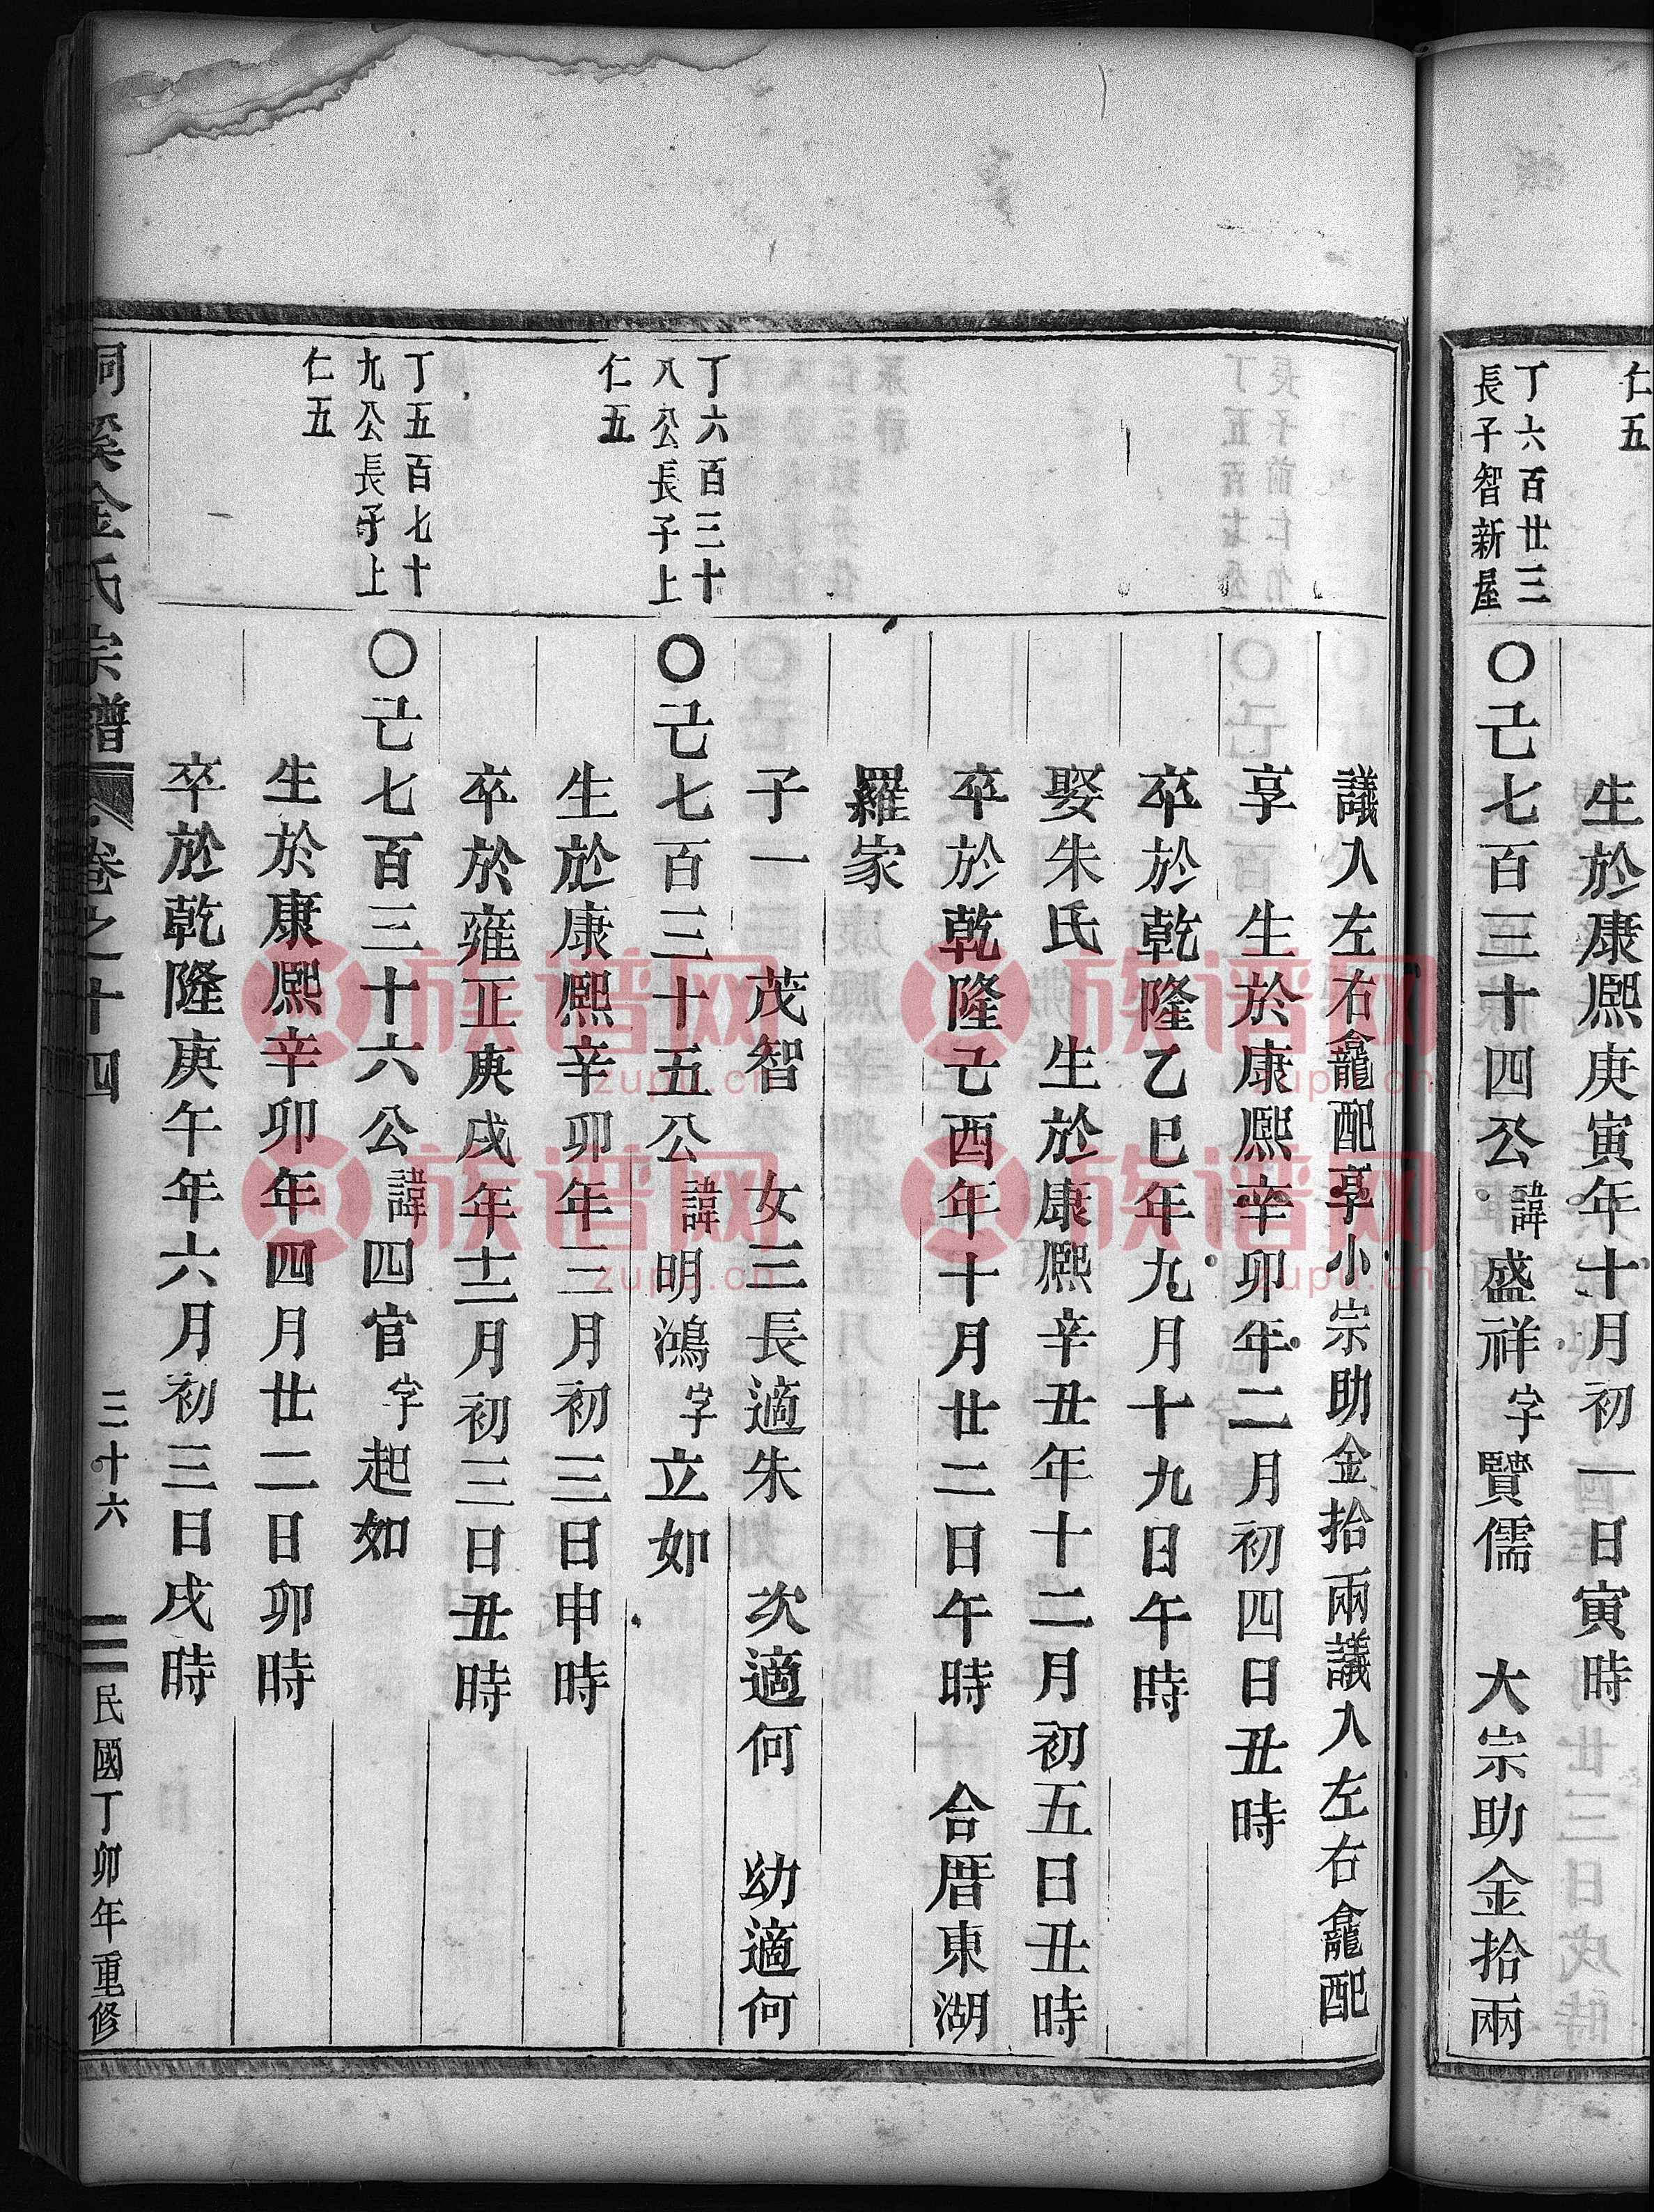 仁五
生於康熙庚寅年十月初一日寅時
丁六百廿三
長子智新屋
〇己七百三十四公諱盛祥字贊儒 大宗助金拾兩
議入左右龕配享小宗助金拾兩議入左右龕配
享 生於康熙辛卯年二月初四日丑時
卒於乾隆乙巳年九月十九日午時
娶朱氏 生於康熙辛丑年十二月初五日丑時
卒於乾隆己酉年十月廿二日午時 合厝東湖
羅家
子一 茂智 女三長適朱 次適何 幼適何
丁六百三十
八公長子上
仁五
〇己七百三十五公諱明鴻字立如
生於康熙辛卯年三月初三日申時
卒於雍正庚戌年十二月初三日丑時
丁五百七十
九公長子上
仁五
〇己七百三十六公諱四官字起如
生於康熙辛卯年四月廿二日卯時
卒於乾隆庚午年六月初三日戌時
溪金氏宗譜 卷之十四 三十六 民國丁卯年重修
族谱网
zupu.cn
族谱网
zupu.cn
族谱网
zupu.cn
族谱网
zupu.cn